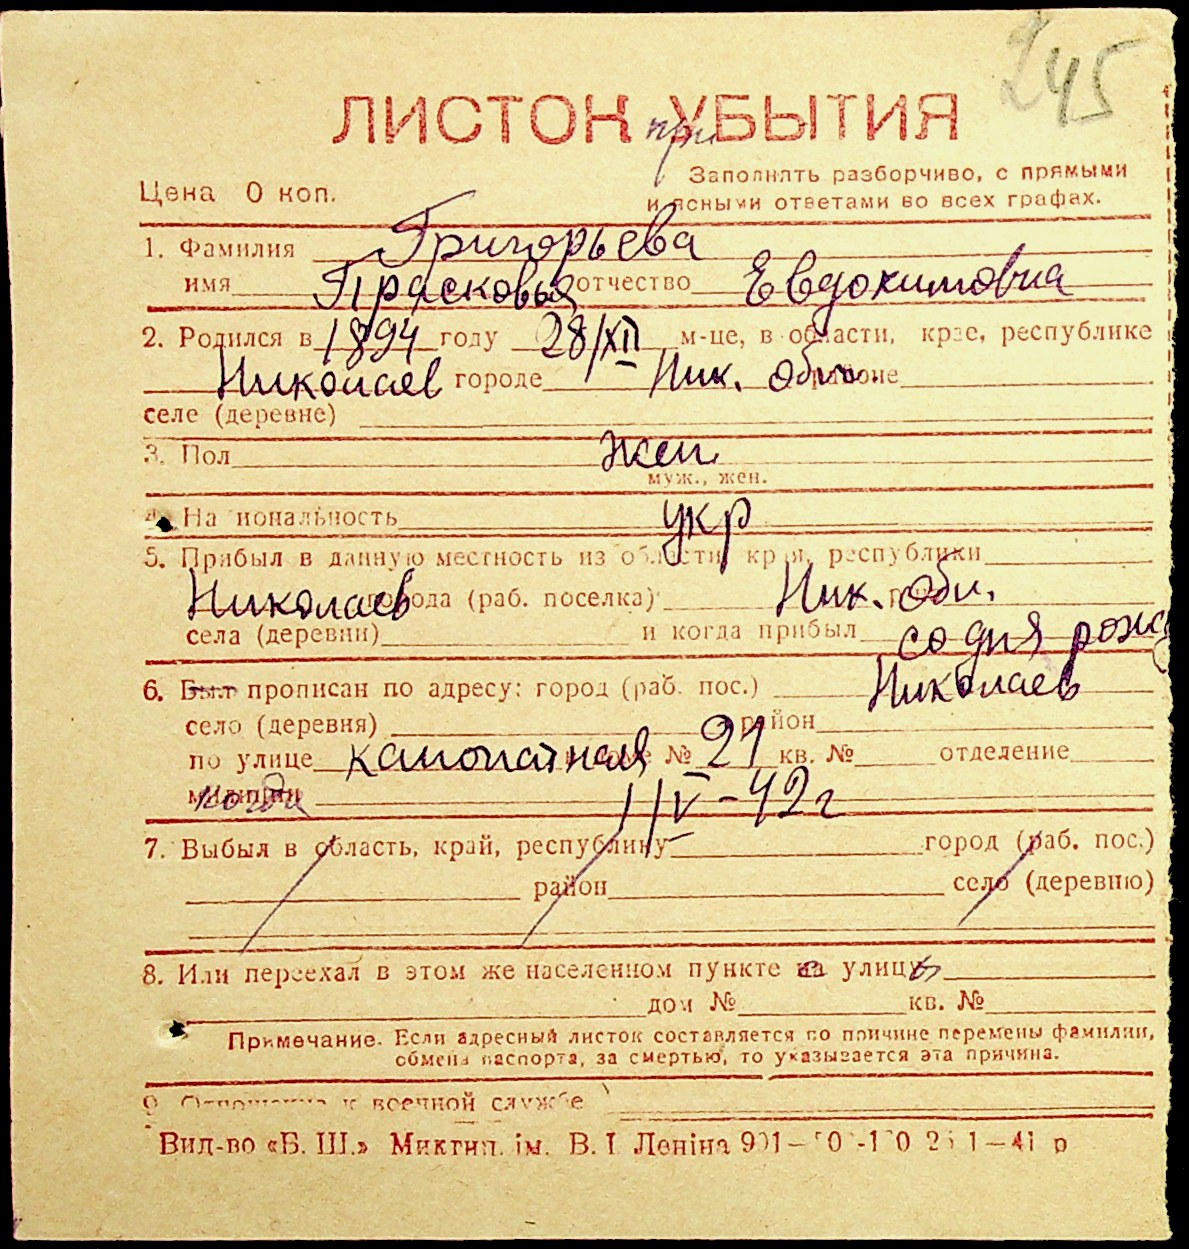 245
ЛИСТОК при УБЫТИЯ
Заполнять разборчиво, с прямыми
Цена 0 коп. и ясными ответами во всех графах.
1. Фамилия Григорьева
имя Прасковья отчество Евдокимовна
2. Родился в 1894 году 28/XII м-це, в области, крае, республике
Николаев городе Ник. обл. районе
селе (деревне)
3. Пол жен.
муж., жен.
4. Национальность укр
5. Прибыл в данную местность из области, края, республики
Николаев города (раб. поселка) Ник. обл.
села (деревни) и когда прибыл со дня рожд
6. Был прописан по адресу: город (раб. пос.) Николаев
село (деревня) район
по улице канатная доме № 21 кв. № отделение
милиции когда 1/V-42г
7. Выбыл в область, край, республику город (раб. пос.)
район село (деревню)
8. Или переехал в этом же населенном пункте на улицу
дом № кв. №
Примечание. Если адресный листок составляется по причине перемены фамилии,
обмена паспорта, за смертью, то указывается эта причина.
9. Отношение к военной службе
Вид-во «Б. Ш.» Миктип. ім. В. І Леніна